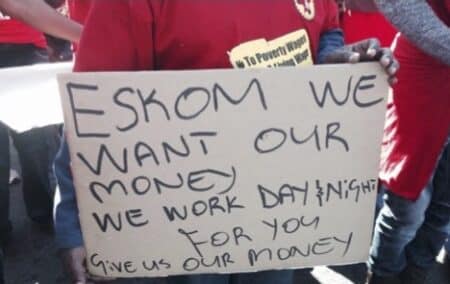 To Poverty Wages
Living Wage
ESKOM WE
WANT OUR
MONEY
WE WORK DAY & NIGHT
FOR YOU
GIVE US OUR MONEY